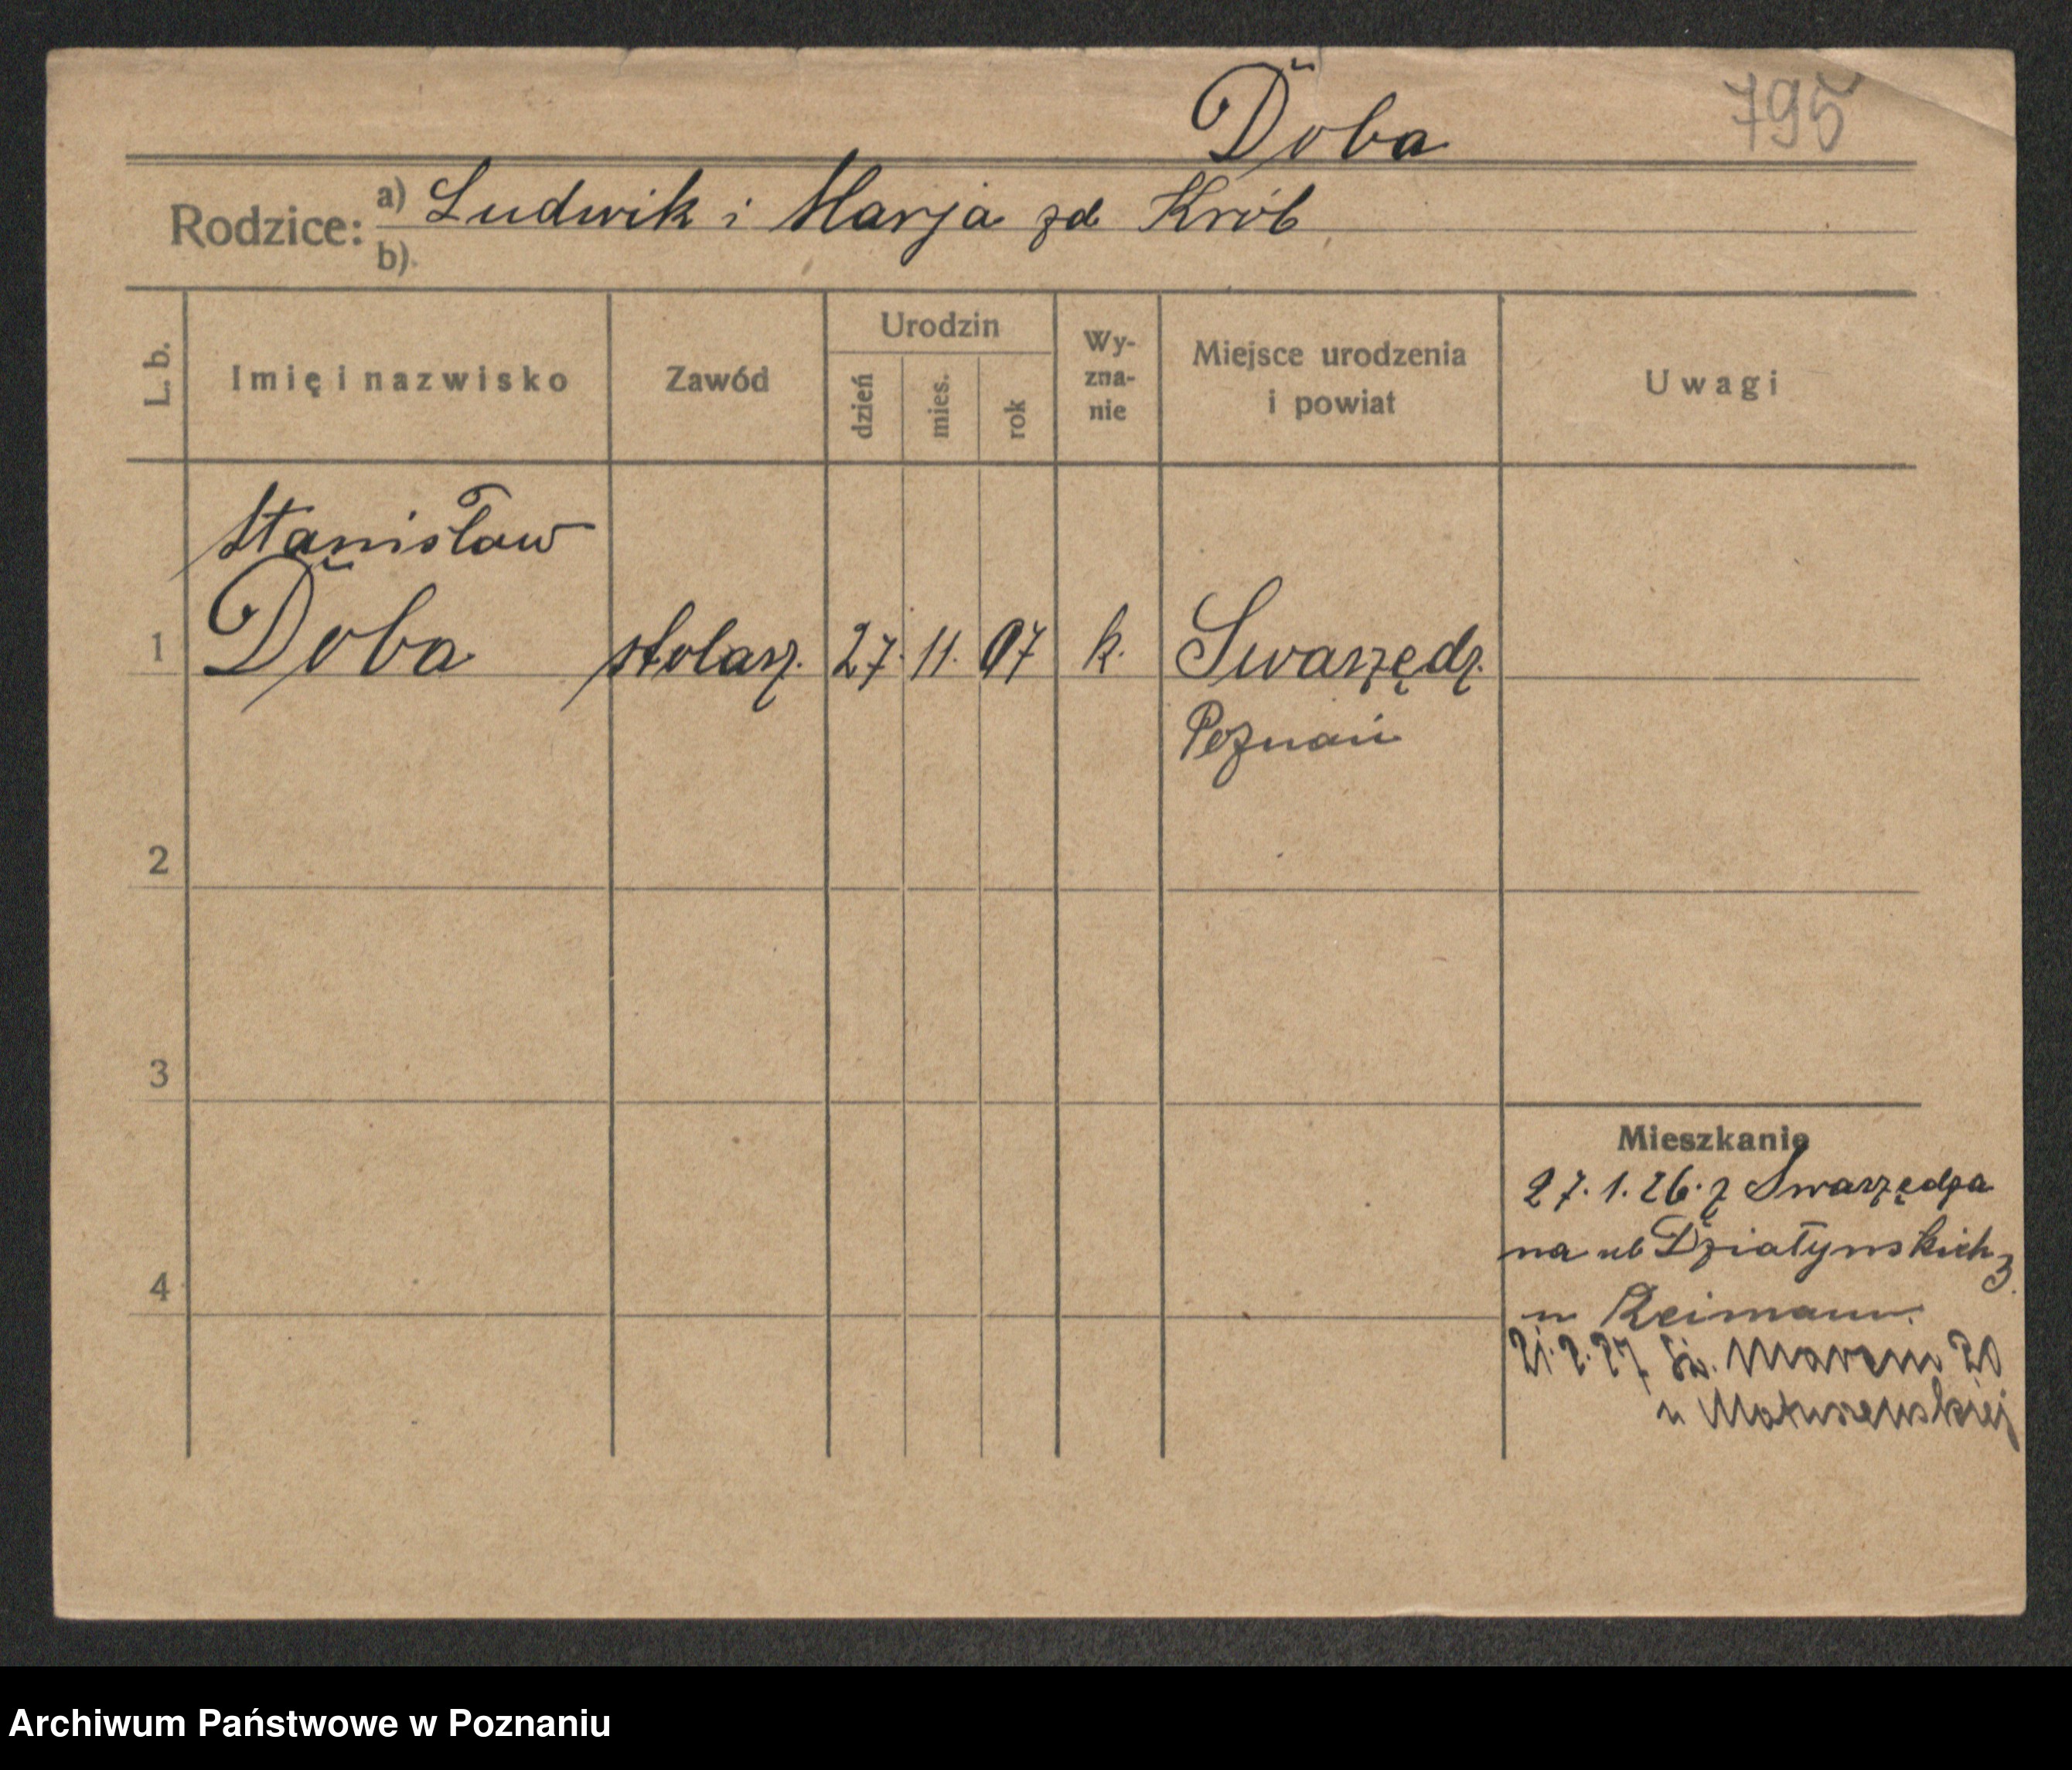 Doba
795
Rodzice: a) Ludwik i Marja zd Król
b)
L. b.
Imię i nazwisko
Zawód
Urodzin
dzień
mies.
rok
Wy-
zna-
nie
Miejsce urodzenia
i powiat
Uwagi
Stanisław
1 Doba stolarz. 27. 11. 07 k. Swarzędz.
Poznań
2
3
Mieszkanie
27.1.26. z Swarzędza
na ul Działynskich 3.
4
u Reimann.
21.2.27 Św. Marcin 20
u
Archiwum Państwowe w Poznaniu